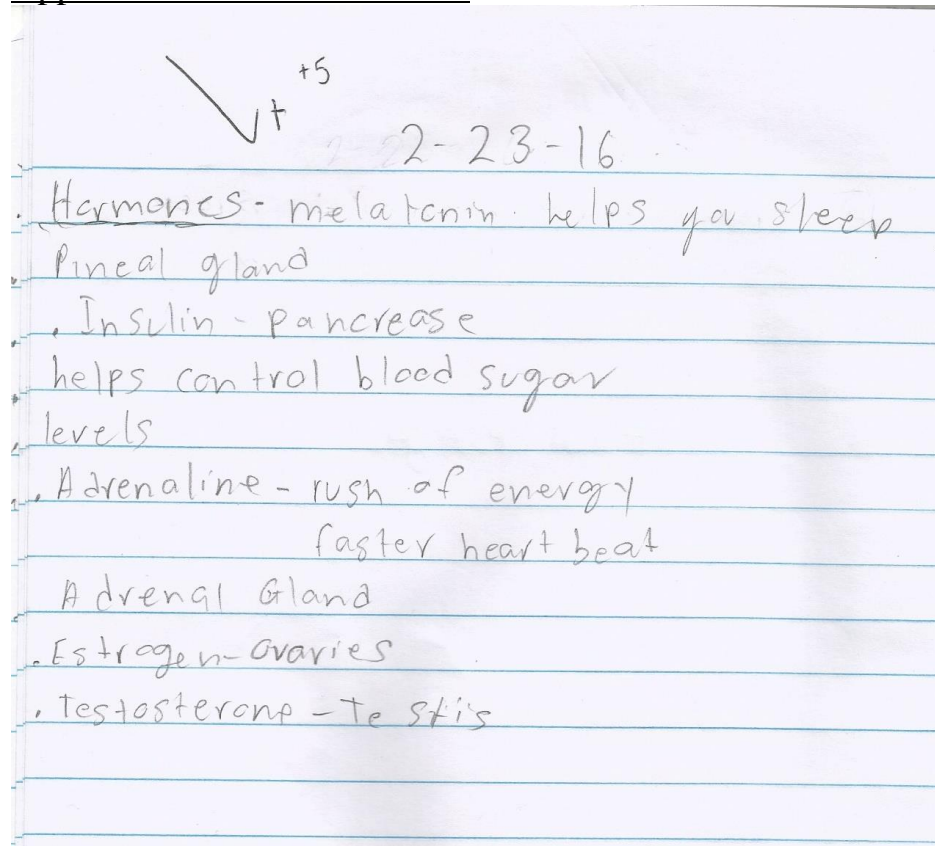 +5
√+
2-23-16
. Hormones - melatonin helps you sleep
Pineal gland
. Insulin - pancrease
helps control blood sugar
levels
. Adrenaline - rush of energy
faster heart beat
Adrenal Gland
. Estrogen - ovaries
. Testosterone - Testis